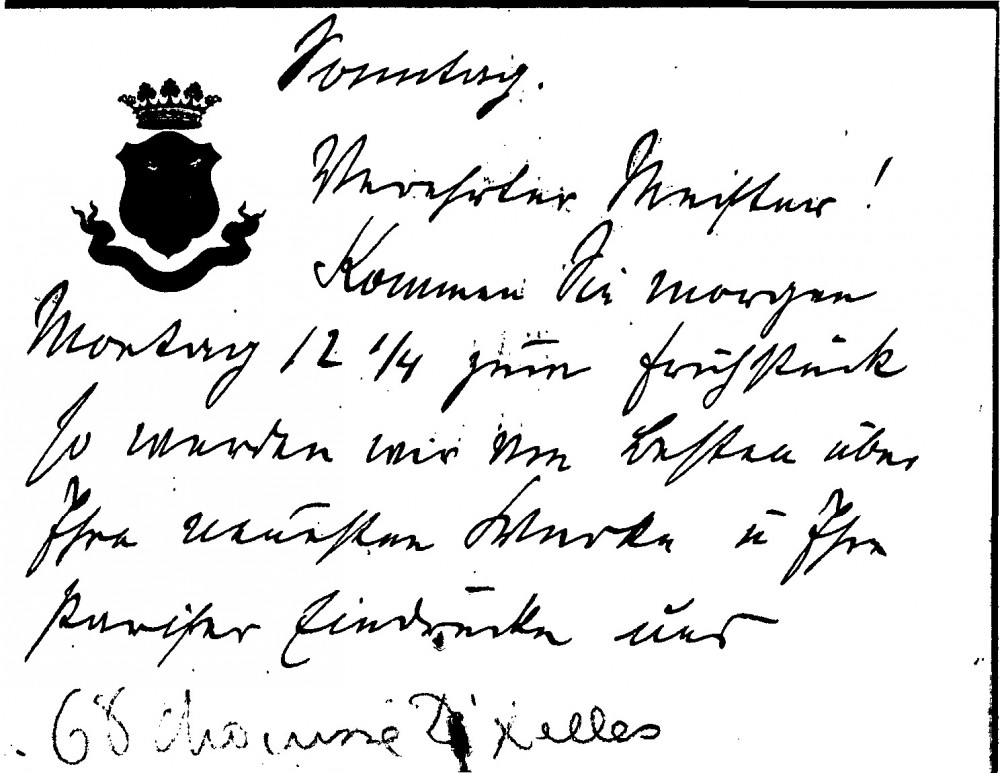 Sonntag.
Verehrter Meister!
Kommen Sie morgen
Montag 12 1/4 zum Frühstück
so werden wir am besten über
Ihre neuesten Werke u Ihre
Pariser Eindrücke uns
68 Chaussée D'ixelles